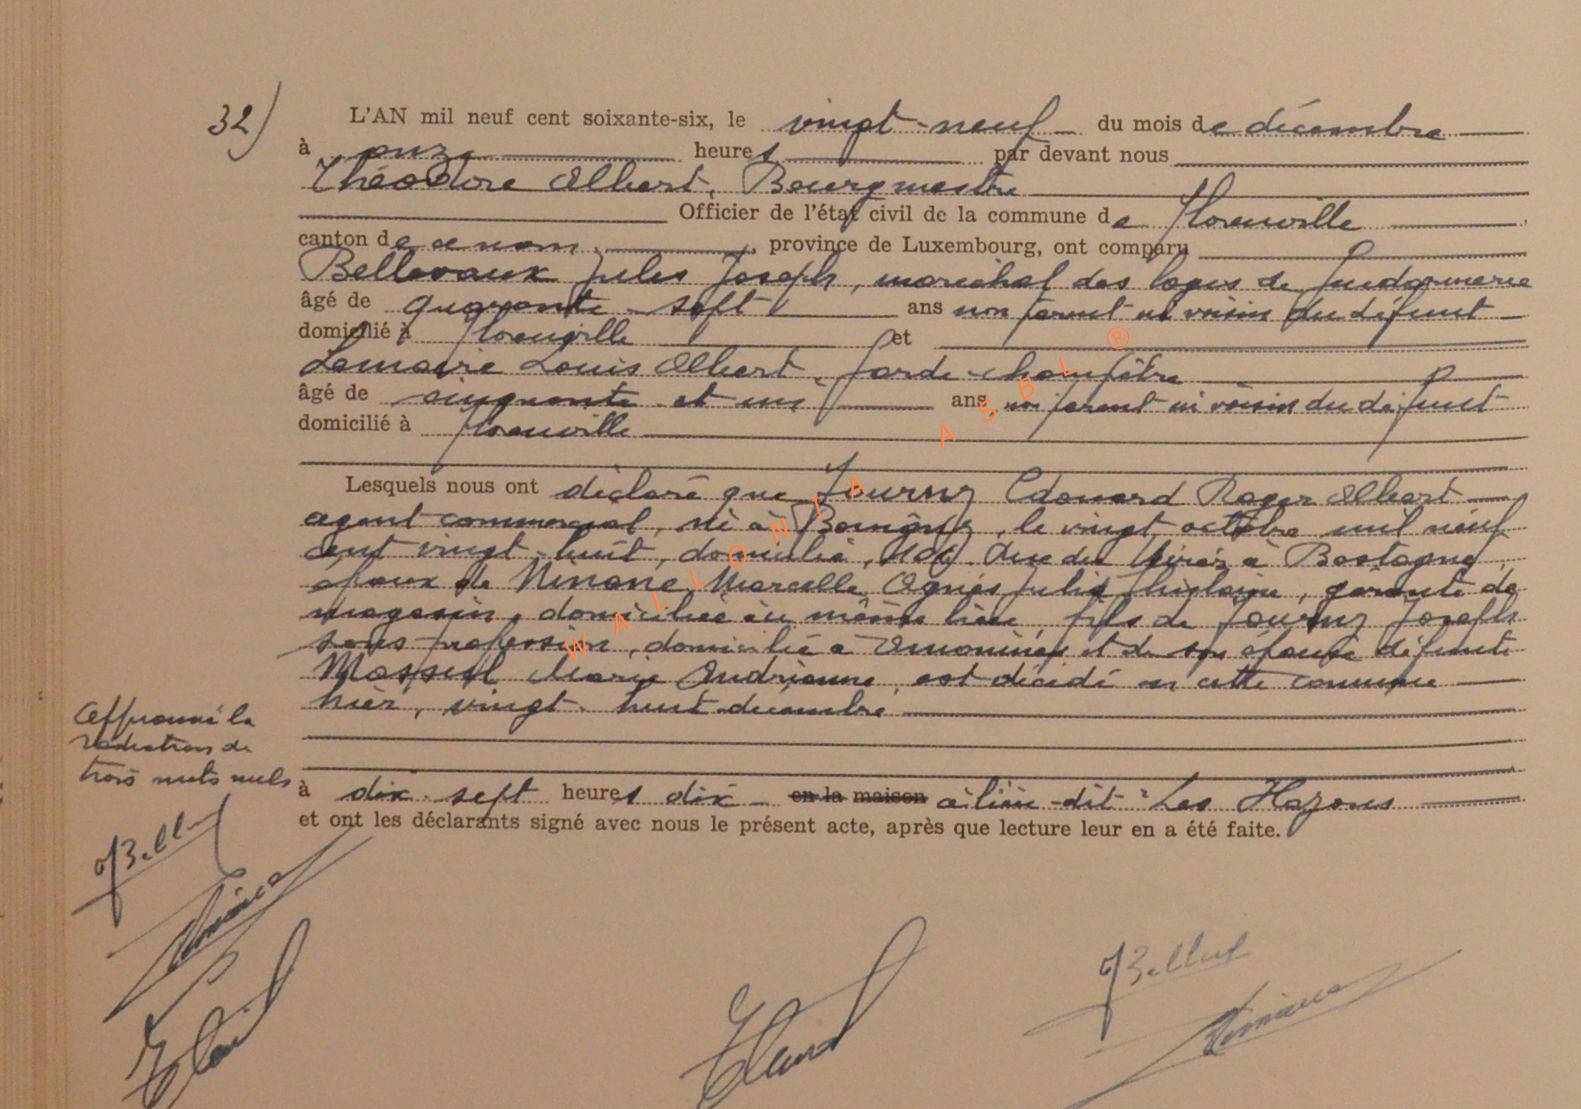 32)
L'AN mil neuf cent soixante-six, le vingt-neuf du mois de décembre
à onze heures par devant nous
Théodore Albert, Bourgmestre
Officier de l'état civil de la commune de Florenville
canton de ce nom, province de Luxembourg, ont comparu
Bellevaux Jules Joseph, maréchal des logis de gendarmerie
âgé de quarante-sept ans non parent ni voisin du défunt
domicilié à Florenville et
Lemaire Louis Albert, garde-champêtre
âgé de cinquante et un ans non parent ni voisin du défunt
domicilié à Florenville
Lesquels nous ont déclaré que Fourny Edouard Roger Albert
agent commercial, né à le vingt octobre mil neuf
cent vingt-huit, domicilié, rue du à Bastogne,
époux de Ninane Marcelle Agnès Julie Ghislaine, gérante de
magasin, domiciliée au même lieu, fils de Fourny Joseph
sans profession, domicilié à et de son épouse défunte
Marie Andrienne, est décédé en cette commune
hier, vingt-huit décembre
à dix-sept heures dix en la maison à lieu-dit "Les Hazons
et ont les déclarants signé avec nous le présent acte, après que lecture leur en a été faite.
Approuvé la
radiation de
trois mots nuls
WALLONIA ASBL ®